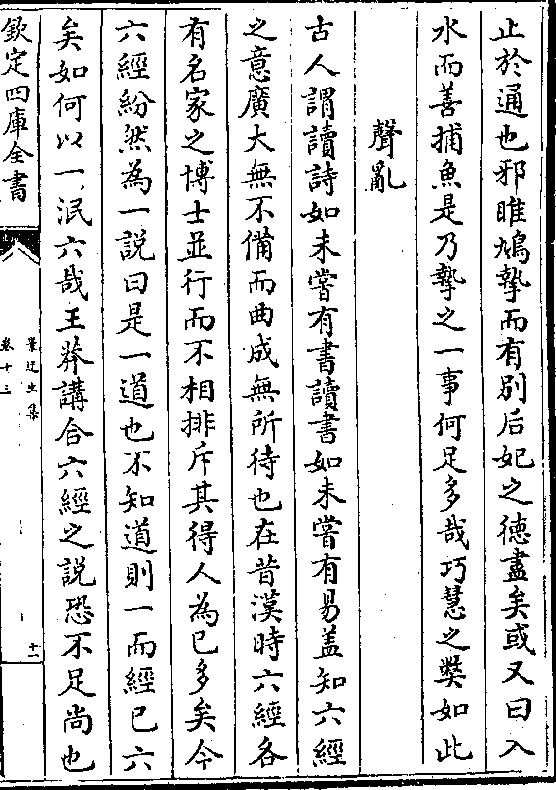 止於通也邪雎鳩摯而有別后妃之德盡矣或又曰入
水而善捕魚是乃摯之一事何足多哉巧慧之獘如此
聲亂
古人謂讀詩如未嘗有書讀書如未嘗有易盖知六經
之意廣大無不備而曲成無所待也在昔漢時六經各
有名家之博士並行而不相排斥其得人為已多矣今
六經紛然為一說曰是一道也不知道則一而經已六
矣如何以一泯六哉王莽講合六經之說恐不足尚也
欽定四庫全書
景迂生集
卷十三
十一